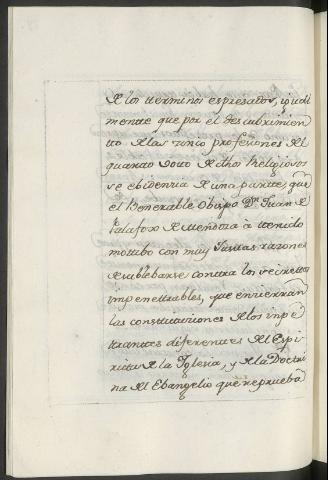 de los terminos espresatos, y udi
mente que por el descubrimien
to de las cinco profesiones del
quarto voto de dthos Religiosos
se ebidenzia de una partte, que
el Benerable Obispo Dn. Juan de
Palafox de Mendoza à ttenido
mottibo con muy Justas razones
de sublebarse conttra los secrettos
impenettrables, que enzierran
las constituziones de los inpe
ttranttes diferenttes del Espi
ritu de la Yglesia, y de la Doctri
na del Ebangelio que reprueba